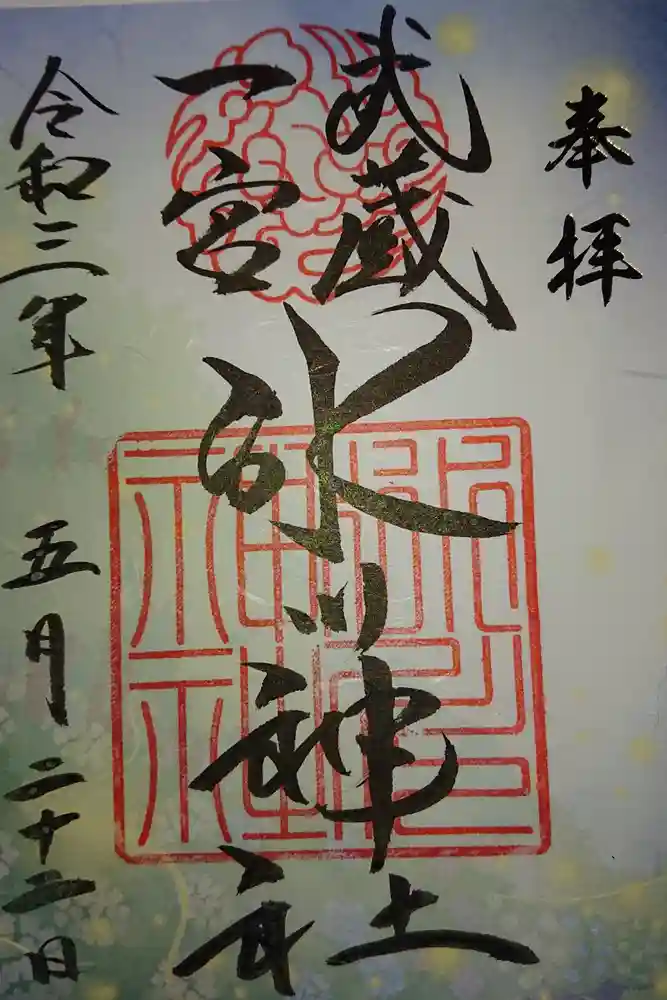 奉拝
武蔵
一宮
氷川神社
令和三年
五月二十二日